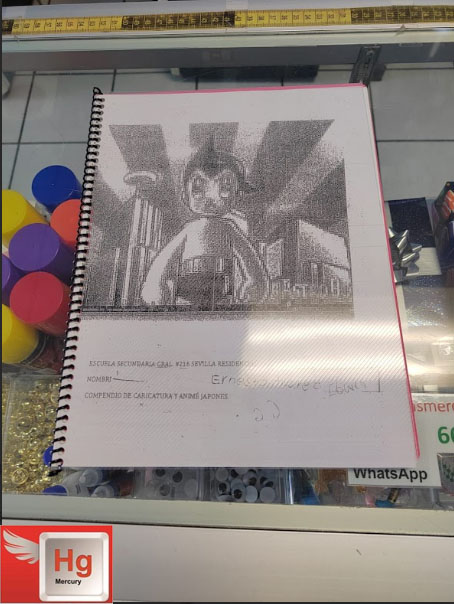 ESCUELA SECUNDARIA GRAL. #216 SEVILLA
NOMBRE
COMPENDIO DE CARICATURA Y ANIMÉ JAPONES
WhatsApp
Hg
Mercury